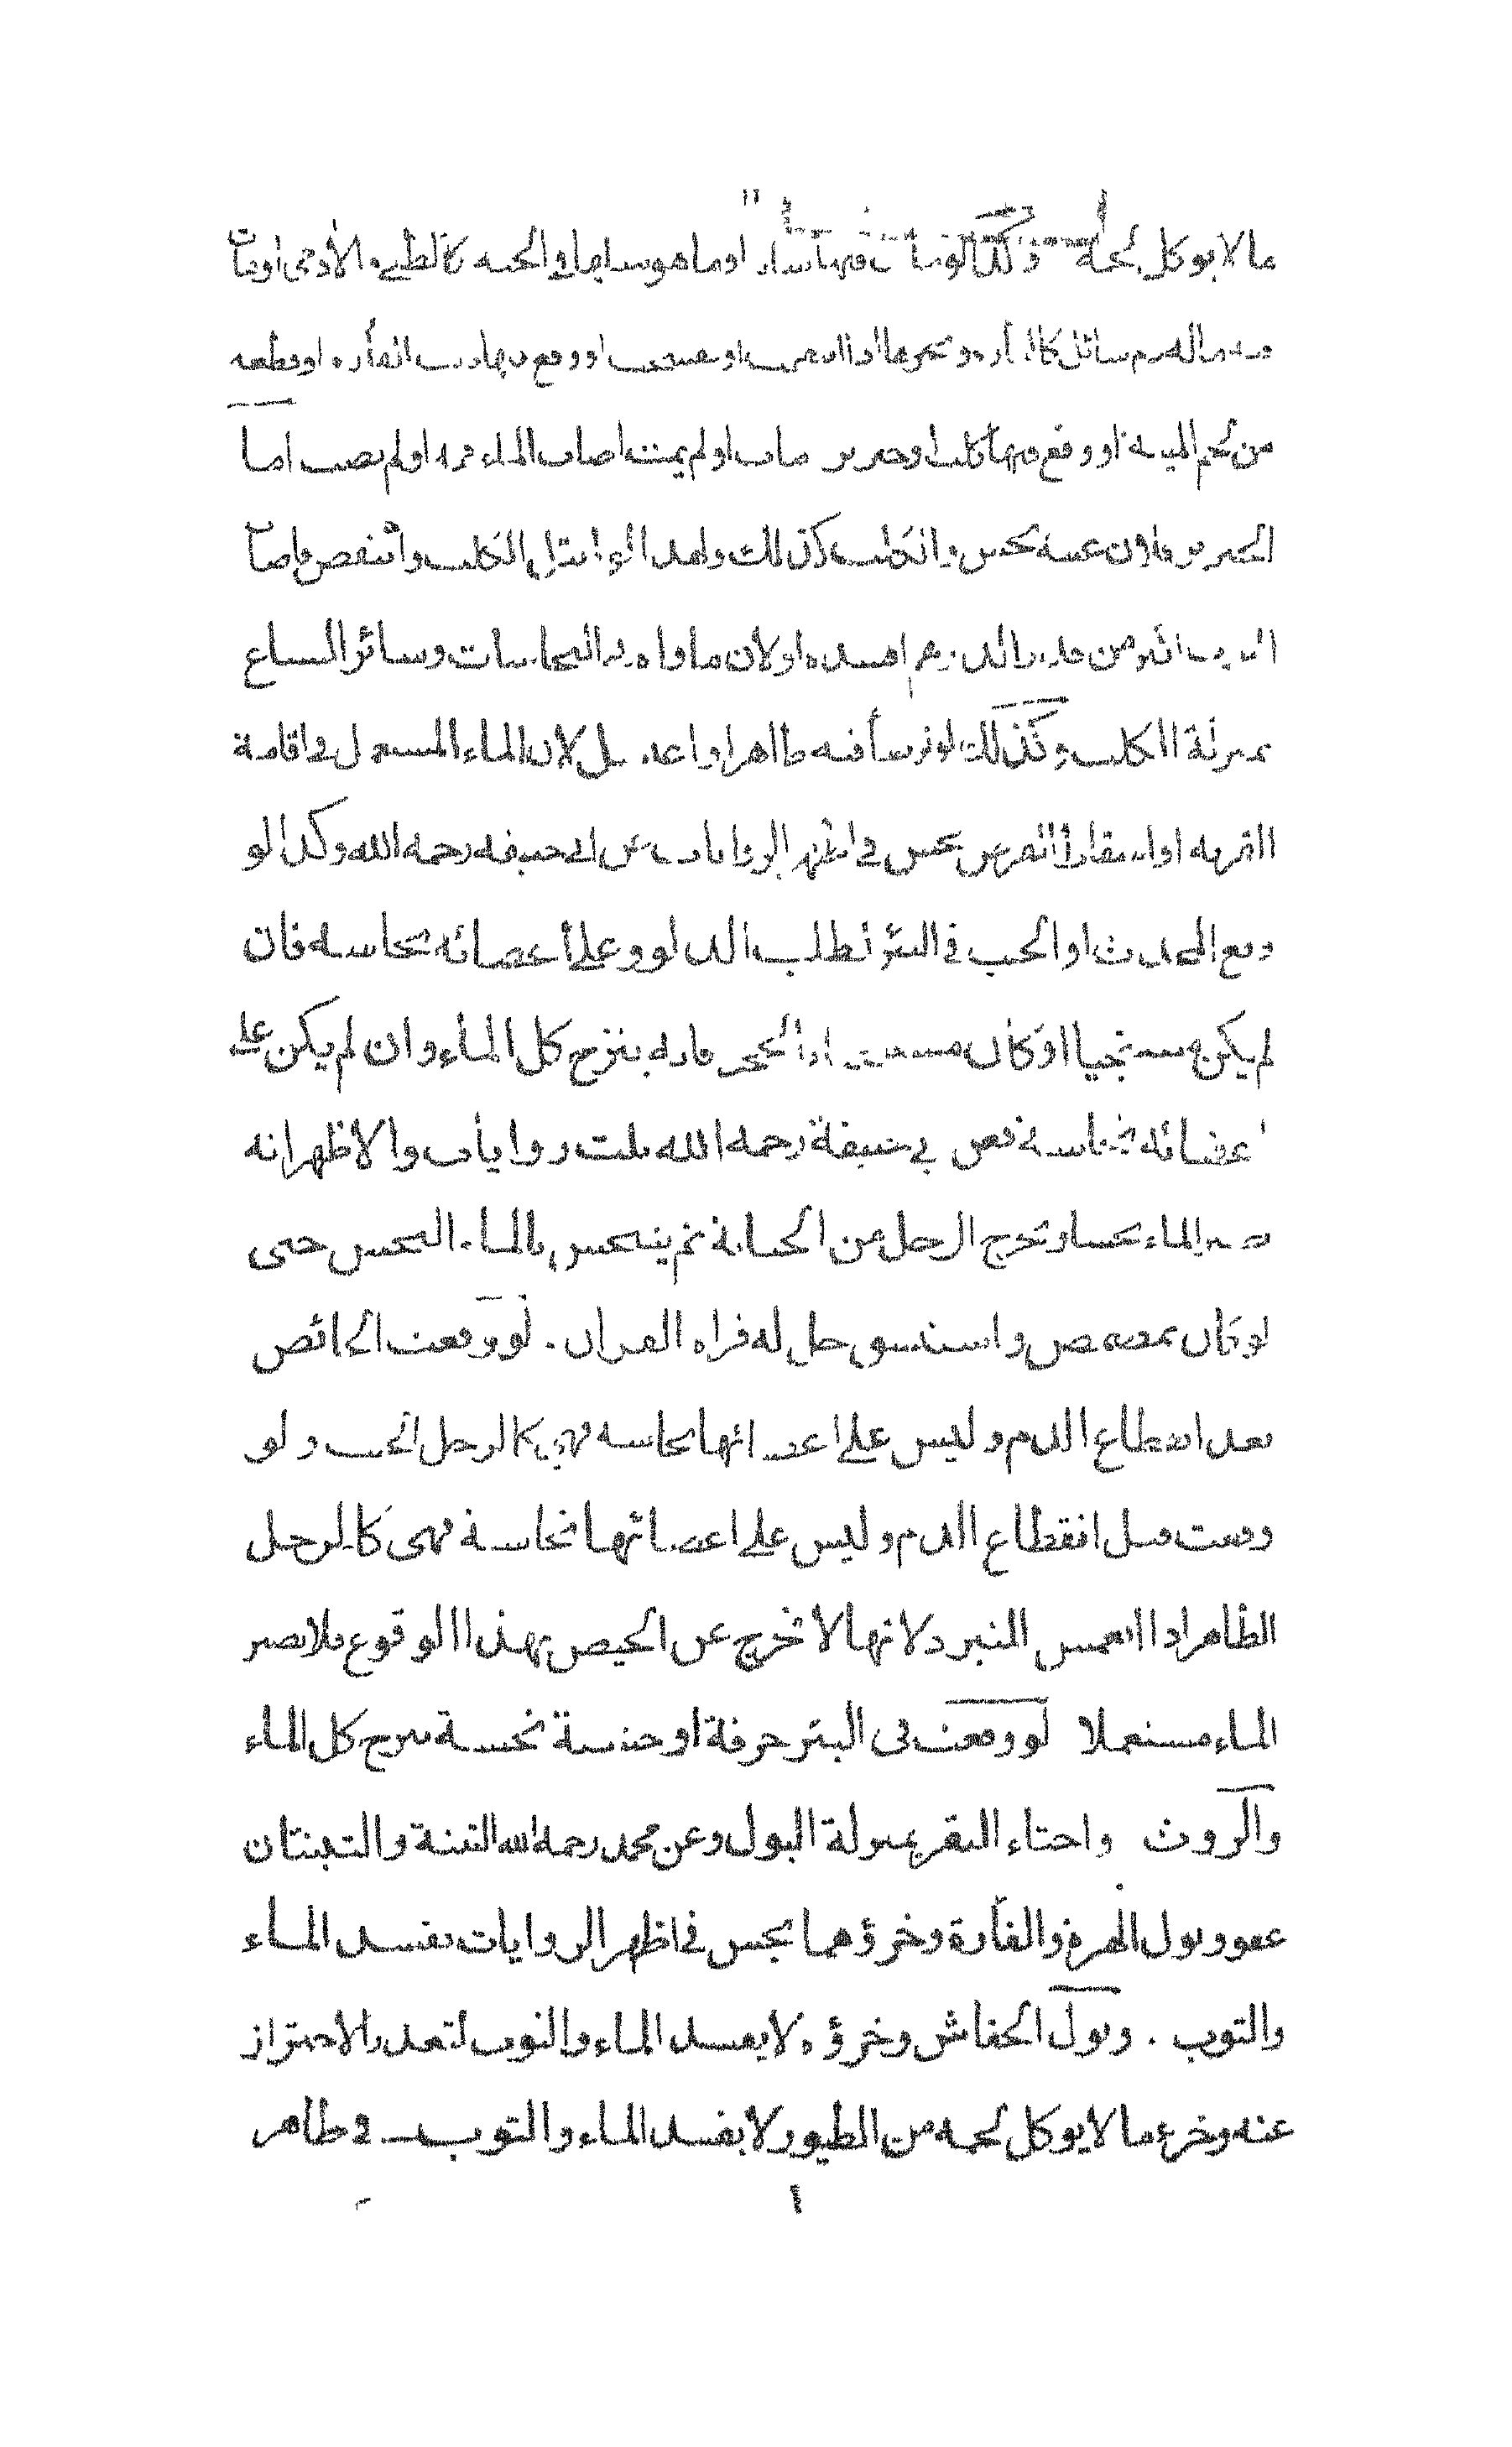 ما لا يوكل لحمه وكذلك لو مات فيها شاة او ما هو مثلها في الجثه كالظبي والآدمي او مات
فيه ما له دم سائل كالفأرة ونحوها اذا انتفخت او تفسخت او وقع فيها ذنب الفأرة او قطعة
من لحم الميتة او وقع فيها كلب او خنزير مات او لم يمت اصاب الماء فمه او لم يصب اما
الخنزير فلان عينه نجس والكلب كذلك ولهذا لو ابتل الكلب وانتفض فاصاب
الثوب اكثر من قدر الدرهم افسده لان مأواه النجاسات وسائر السباع
بمنزلة الكلب وكذلك لو توضأ فيه طاهر او اغتسل لان الماء المستعمل في اقامة
القربة او اسقاط الفرض نجس في اظهر الروايات عن ابي حنيفه رحمه الله وكذا لو
وقع المحدث او الجنب في البئر لطلب الدلو وعلى أعضائه نجاسة فان
لم يكن مستنجيا او كان مستنجيا بالحجر فانه ينزح كل الماء وان لم يكن على
اعضائه نجاسة فعن ابي حنيفة رحمه الله ثلث روايات والاظهر انه
يصير الماء نجسا ويخرج الرجل من الجنابة ثم يتنجس بالماء النجس حتى
لو كان تمضمض واستنشق حل له قراءة القرآن . لو وقعت الحائض
بعد انقطاع الدم وليس على اعضائها نجاسه فهي كالرجل الجنب ولو
وقعت قبل انقطاع الدم وليس على اعضائها نجاسة فهى كالرجل
الطاهر اذا انغمس للتبرد لانها لا تخرج عن الحيض بهذا الوقوع فلا يصير
الماء مستعملا لو وقعت فى البئر خرقة او خشبة نجسة ينزح كل الماء
والروث واخثاء البقر بمنزلة البول وعن محمد رحمه الله التبنة والتبنتان
عفو وبول الهرة والفأرة وخرؤهما نجس في اظهر الروايات يفسد الماء
والثوب . وبول الخفاش وخرؤه لا يفسد الماء والثوب لتعذر الاحتراز
عنه وخرء ما لا يوكل لحمه من الطيور لا يفسد الماء والثوب في ظاهر